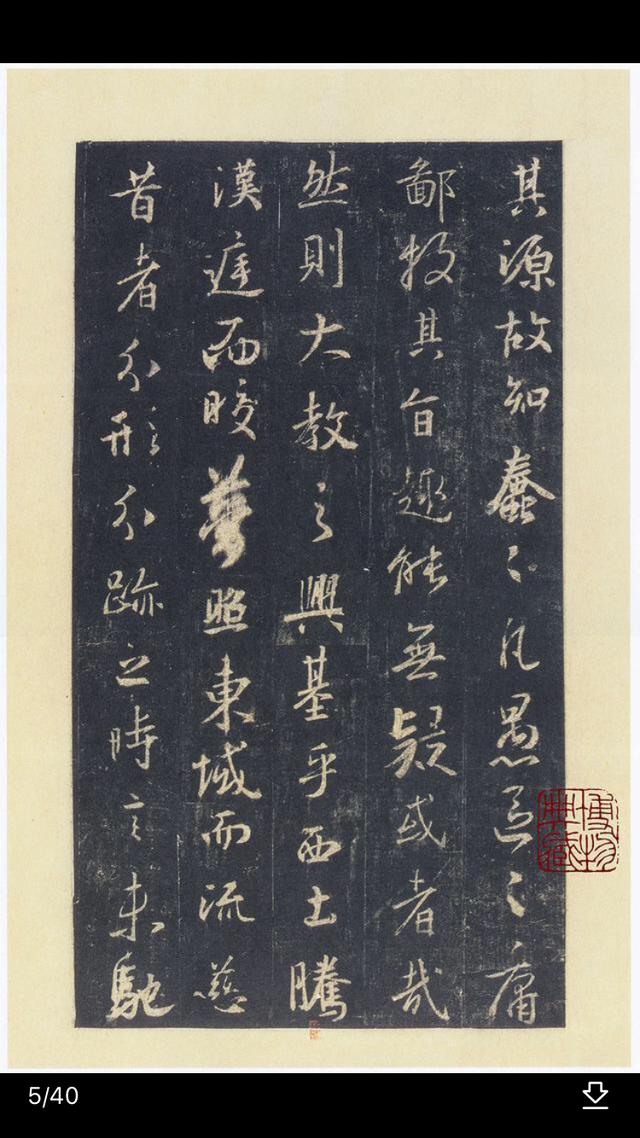 其源故知蠢〻凡愚區〻庸
鄙投其旨趣能無疑或者哉
然則大教之興基乎西土騰
漢庭而皎夢照東域而流慈
昔者分形分跡之時言未馳
博物
典藏
5/40